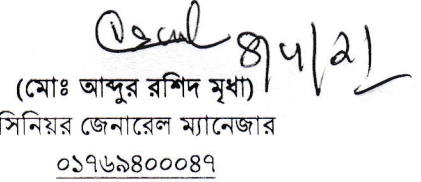 (মোঃ আব্দুর রশিদ মৃধা)
সিনিয়র জেনারেল ম্যানেজার
০১৭৬৯৪০০০৪৭